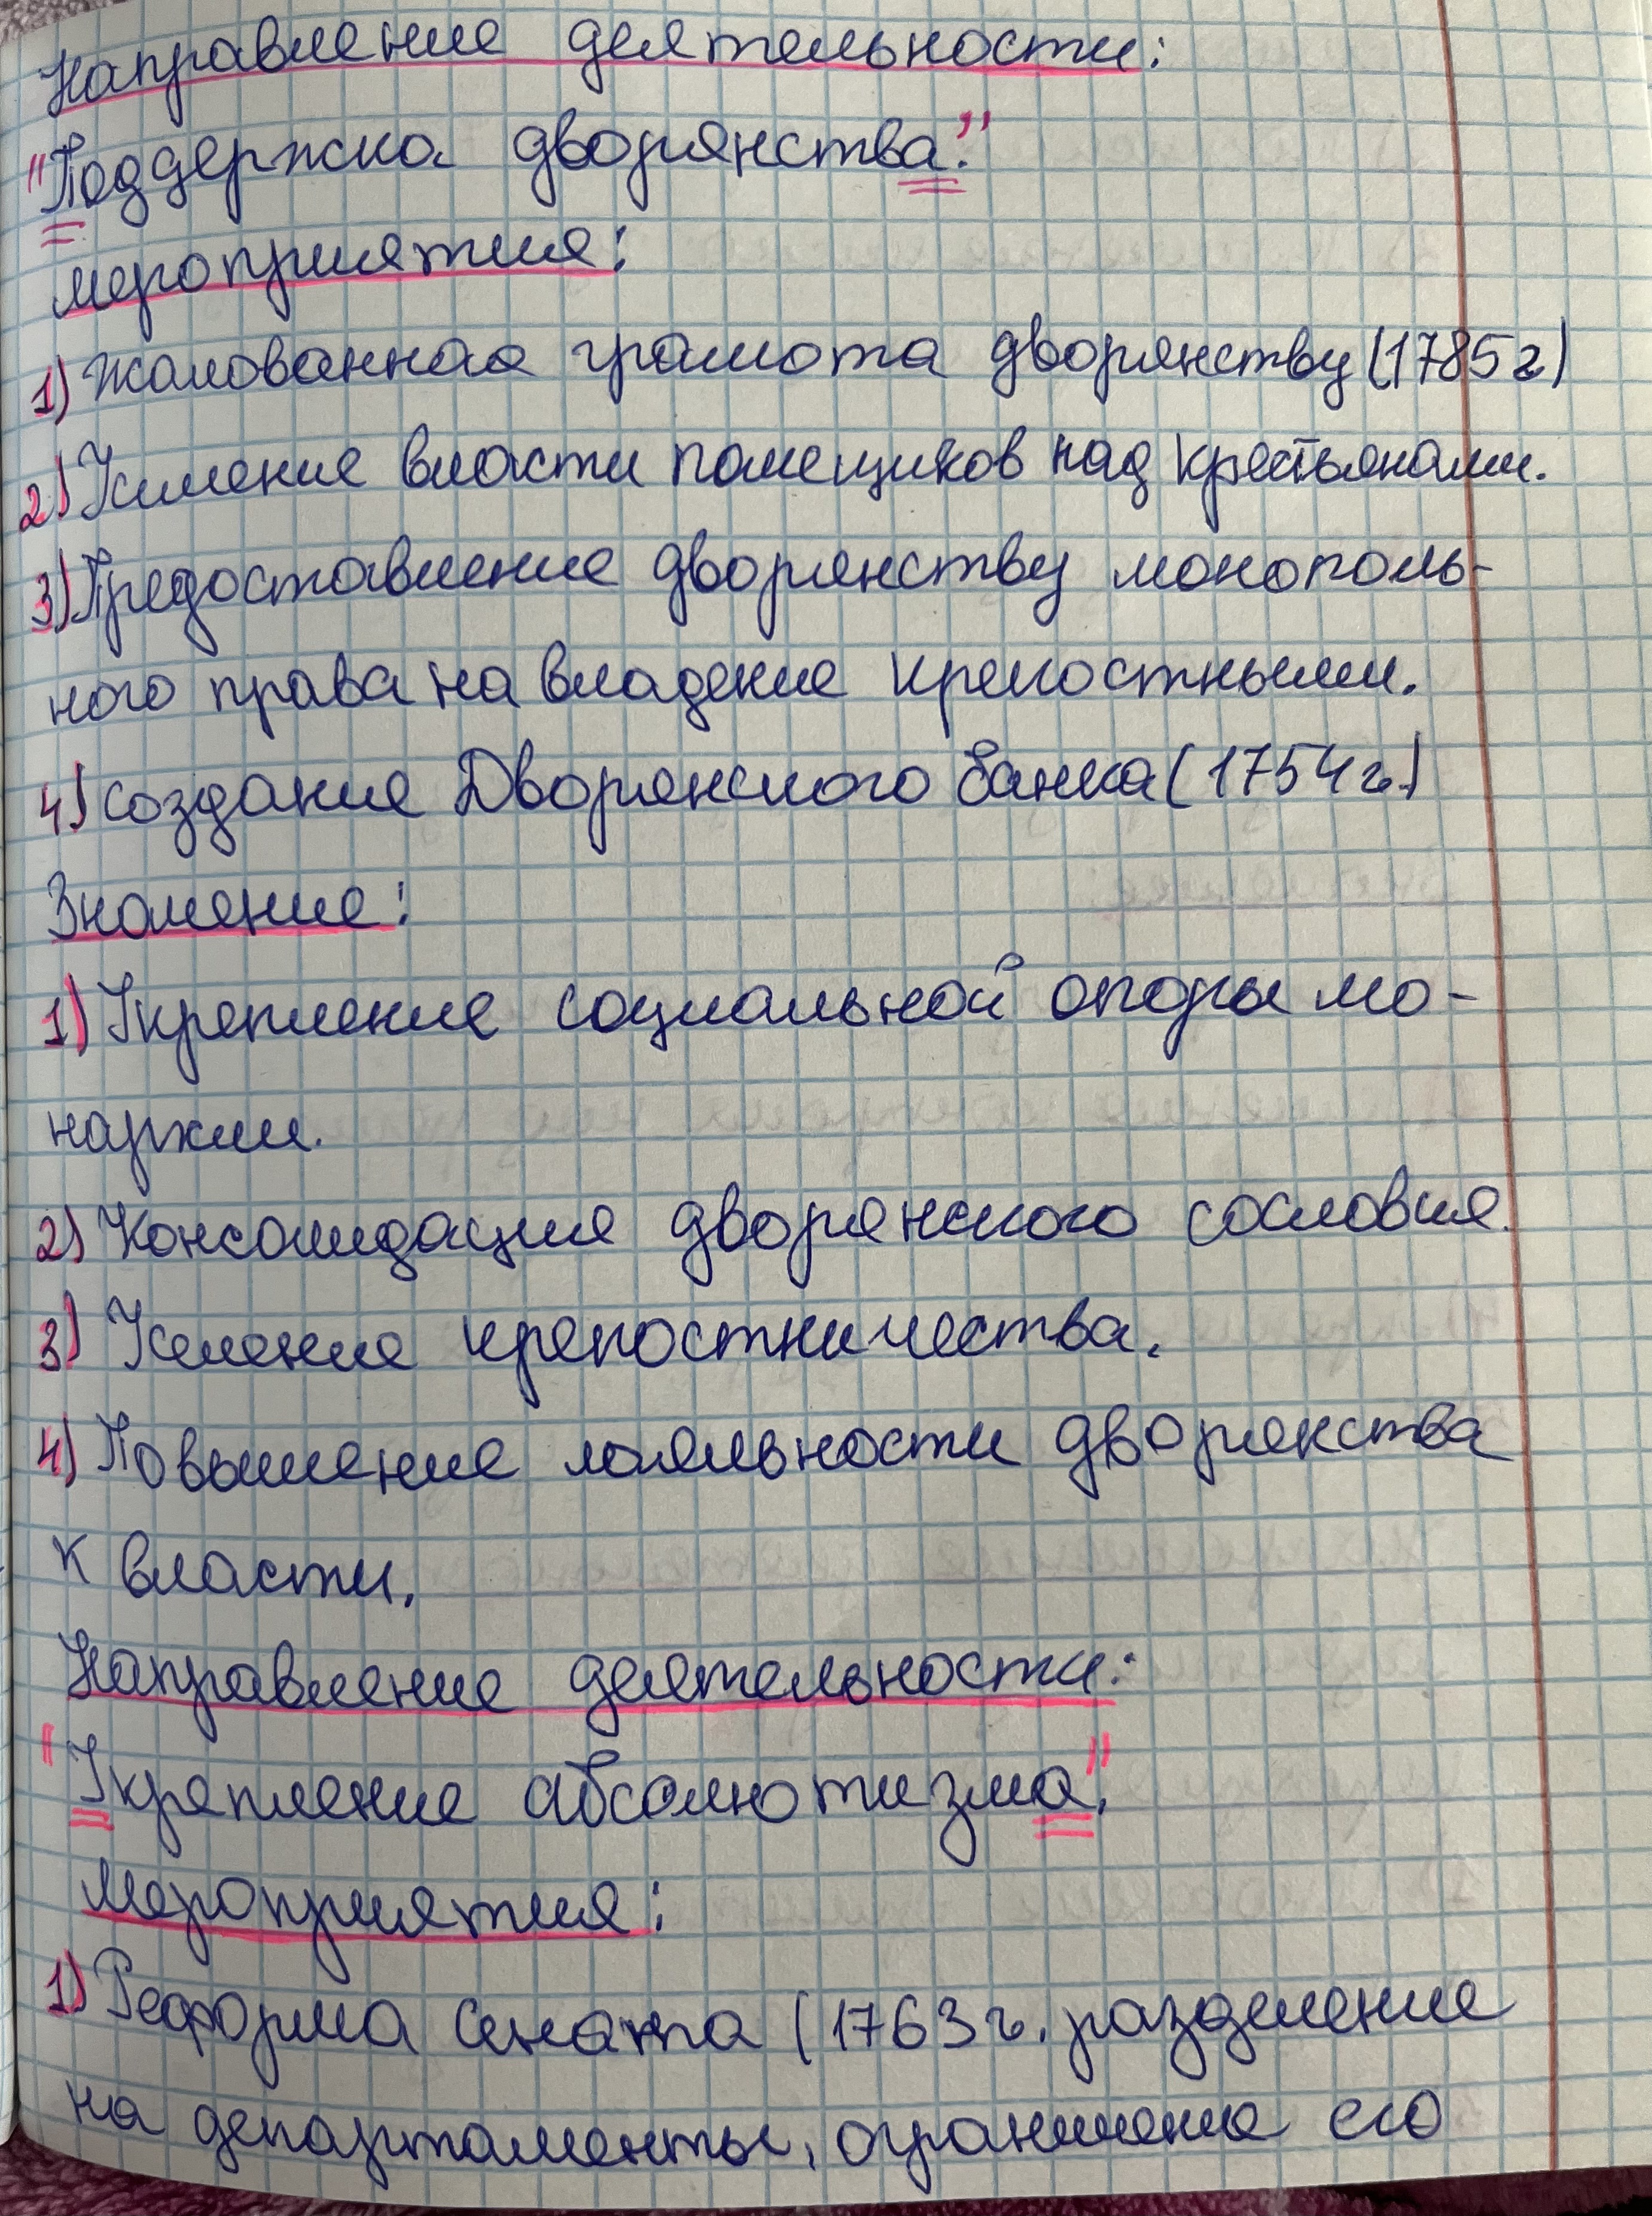 Направление деятельности:
"Поддержка дворянства".
мероприятия:
1) Жалованная грамота дворянству (1785 г)
2) Усиление власти помещиков над крестьянами.
3) Предоставление дворянству монополь-
ного права на владение крепостными.
4) создание Дворянского банка (1754 г.)
Значение:
1) Укрепление социальной опоры мо-
нархии.
2) Консолидация дворянского сословия.
3) Усиление крепостничества.
4) Повышение лояльности дворянства
к власти.
Направление деятельности:
"Укрепление абсолютизма".
Мероприятия:
1) Реформа Сената (1763 г. разделение
на департаменты, ограничение его